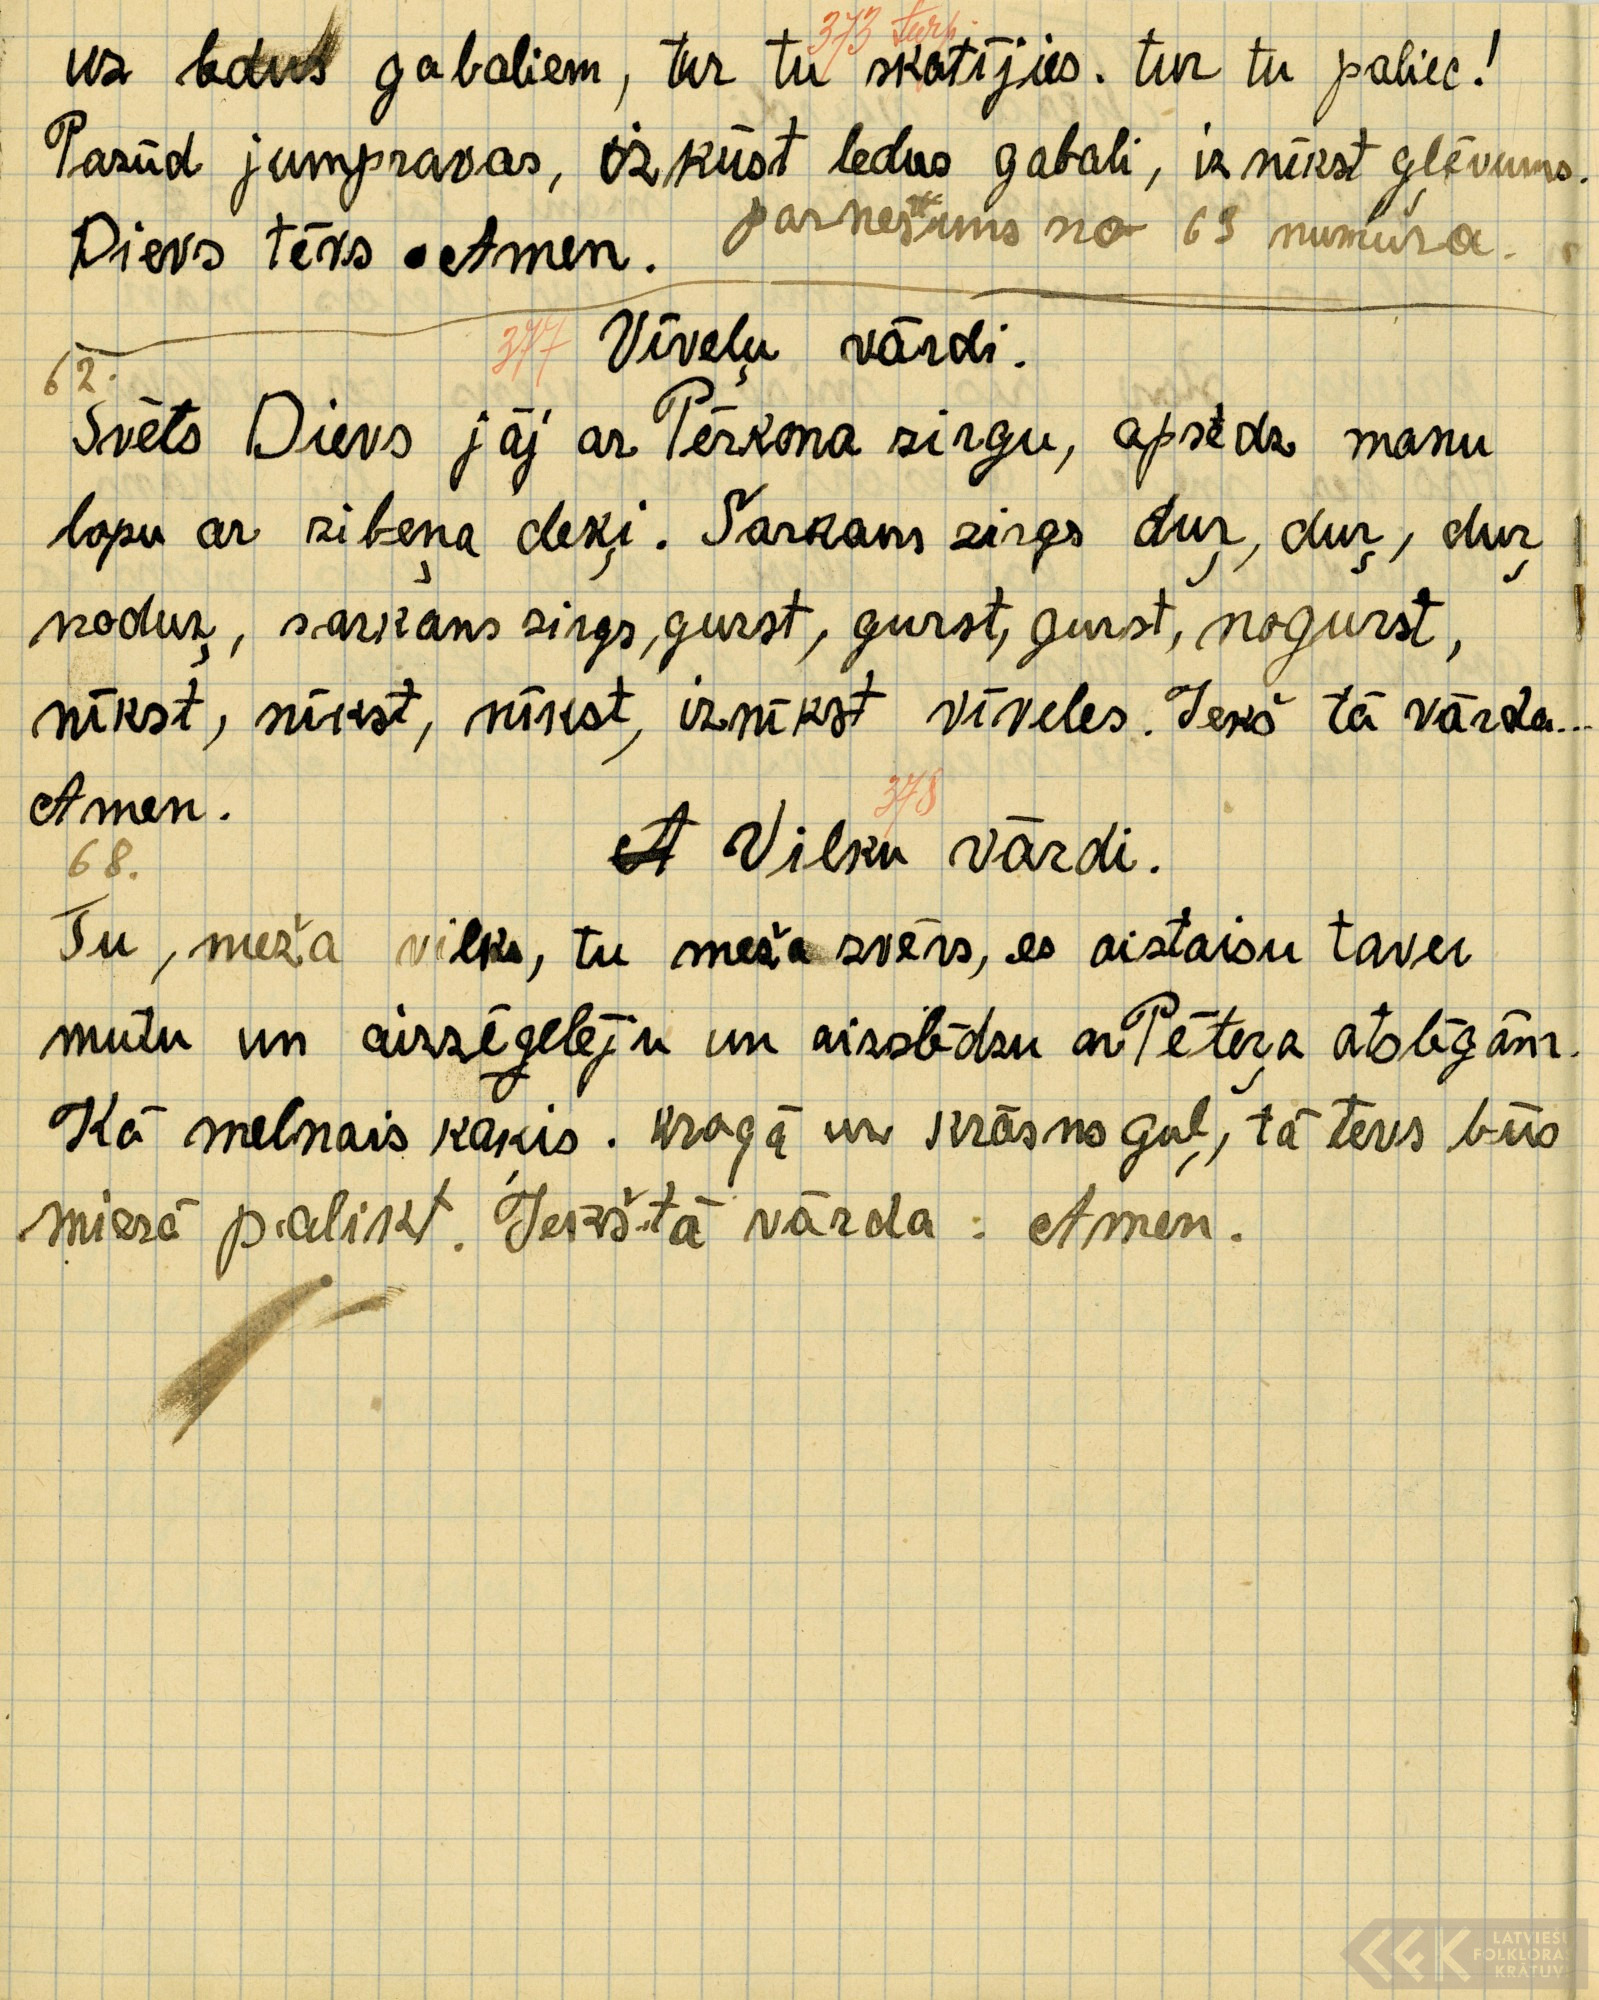 373 turp.
uz ledus gabaliem, tur tu skatījies. tur tu paliec!
Pazūd jumpravas, izkūst ledus gabali, iznīkst glēvums.
Dievs tēvs Amen. parnestums no 69 numura.
377 Vīveļu vārdi.
62.
Svēts Dievs jāj ar Pērkona zirgu, apsedz manu
lopu ar zibeņa deķi. Sarkans zirgs duŗ, duŗ, duŗ
noduŗ, sarkans zirgs, gurst, gurst, gurst, nogurst,
nīkst, nīkst, nīkst, iznīkst vīveles. Iekš tā vārda...
Amen.
378
68.
A Vilku vārdi.
Tu, meža vilks, tu meža zvērs, es aistaisu tavu
mutu un aizzēģelēju un aizslēdzu ar Pēteŗa atslēgām.
Kā melnais kaķis. kragā uz krāsns guļ, tā tevs būs
mierā palikt. Iekš tā vārda: Amen.
LATVIEŠU
FOLKLORAS
KRĀTUVE